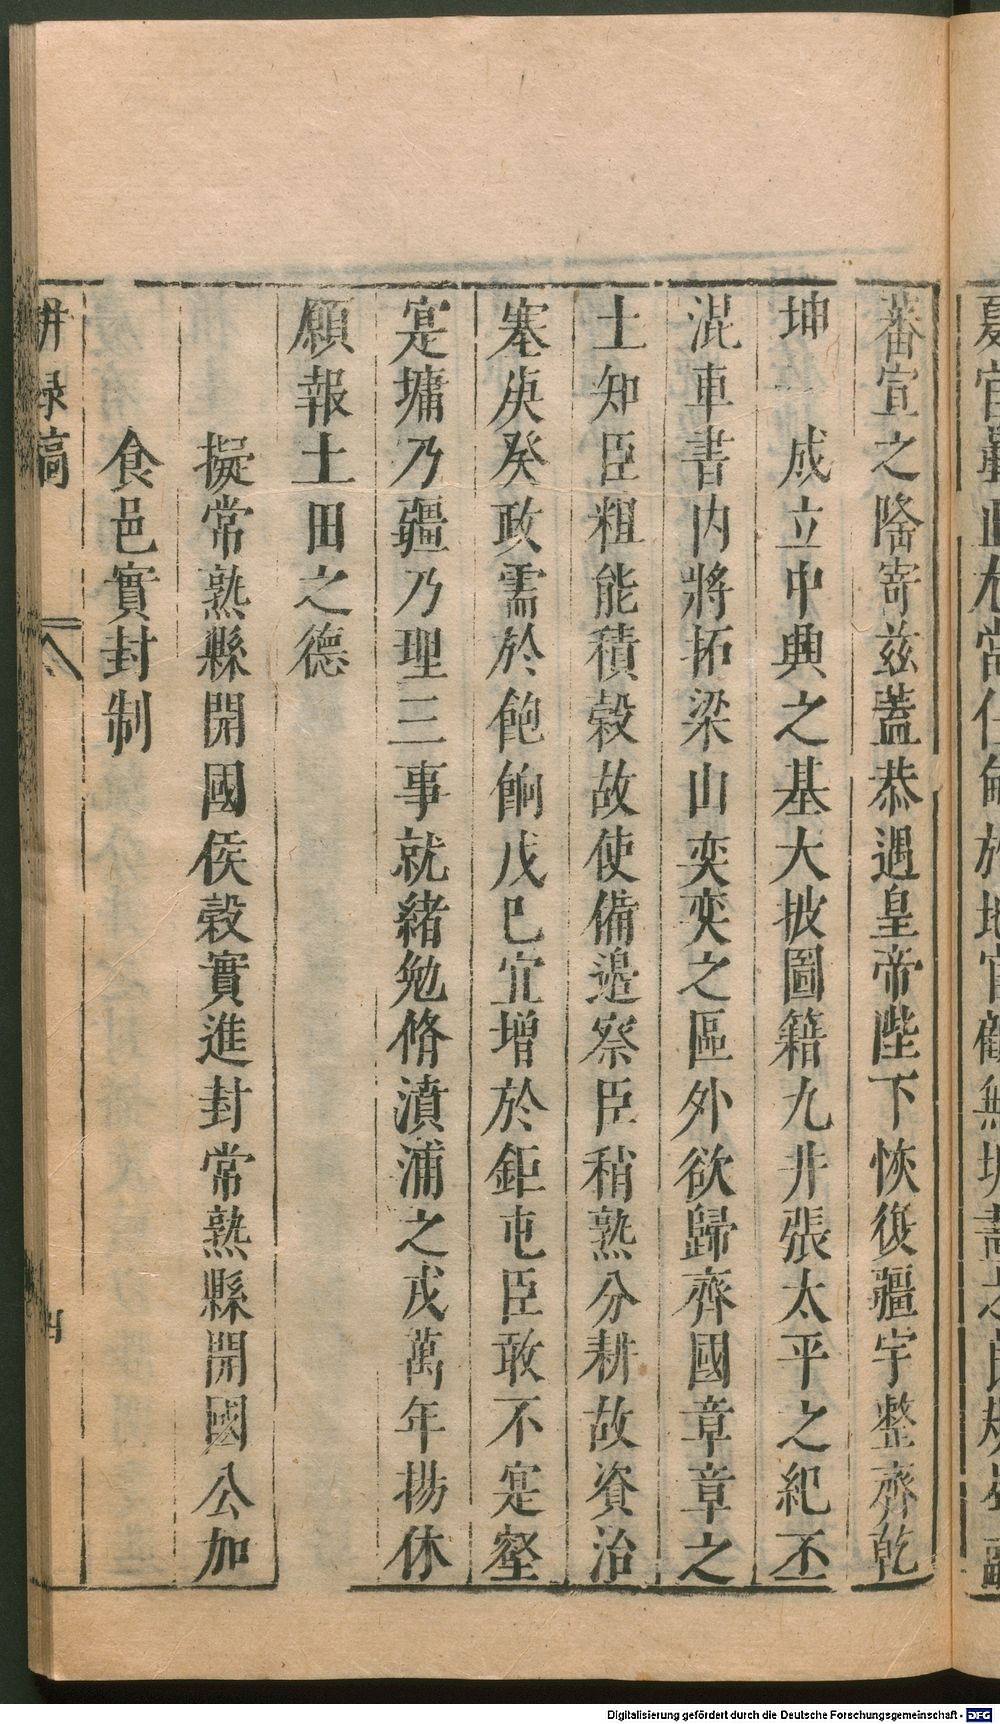 蕃宣之隆寄茲蓋恭遇皇帝陛下恢復疆宇整齊乾
坤一成立中興之基大披圖籍九井張太平之紀丕
混車書内將拓梁山奕奕之區外欲歸齊國章章之
土知臣粗能積穀故使備邊察臣稍熟分耕故資治
塞庚癸政需於飽餉戊巳宜增於鉅屯臣敢不寔壑
寔墉乃疆乃理三事就緒勉脩濆浦之戎萬年揚休
願報土田之德
擬常熟縣開國侯穀實進封常熟縣開國公加
食邑實封制
耕祿稿
Digitalisierung gefördert durch die Deutsche Forschungsgemeinschaft - DFG